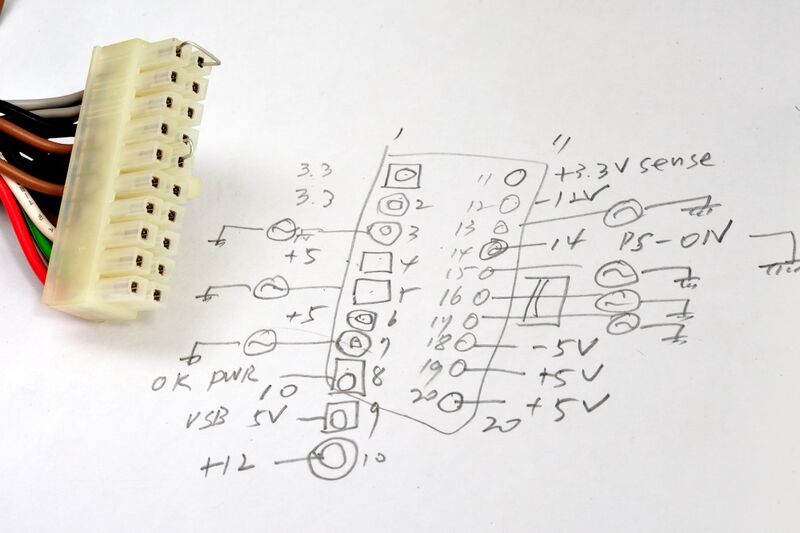 1 11
3.3 11 +3.3V sense
3.3 2 12 -12V
3 13
+5 4 14 14 PS-ON
15
5 16
+5 6 17
7 18 -5V
OK PWR 10 8 19 +5V
VSB 5V 9 20 20 +5V
+12 10